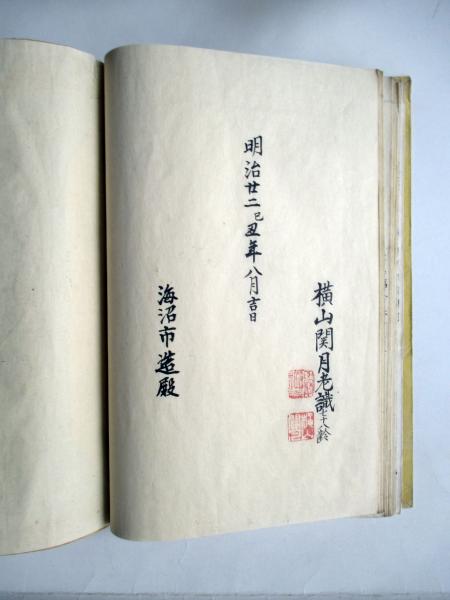 横山関月老識七十八齢
明治廿二己丑年八月吉日
海沼市造殿